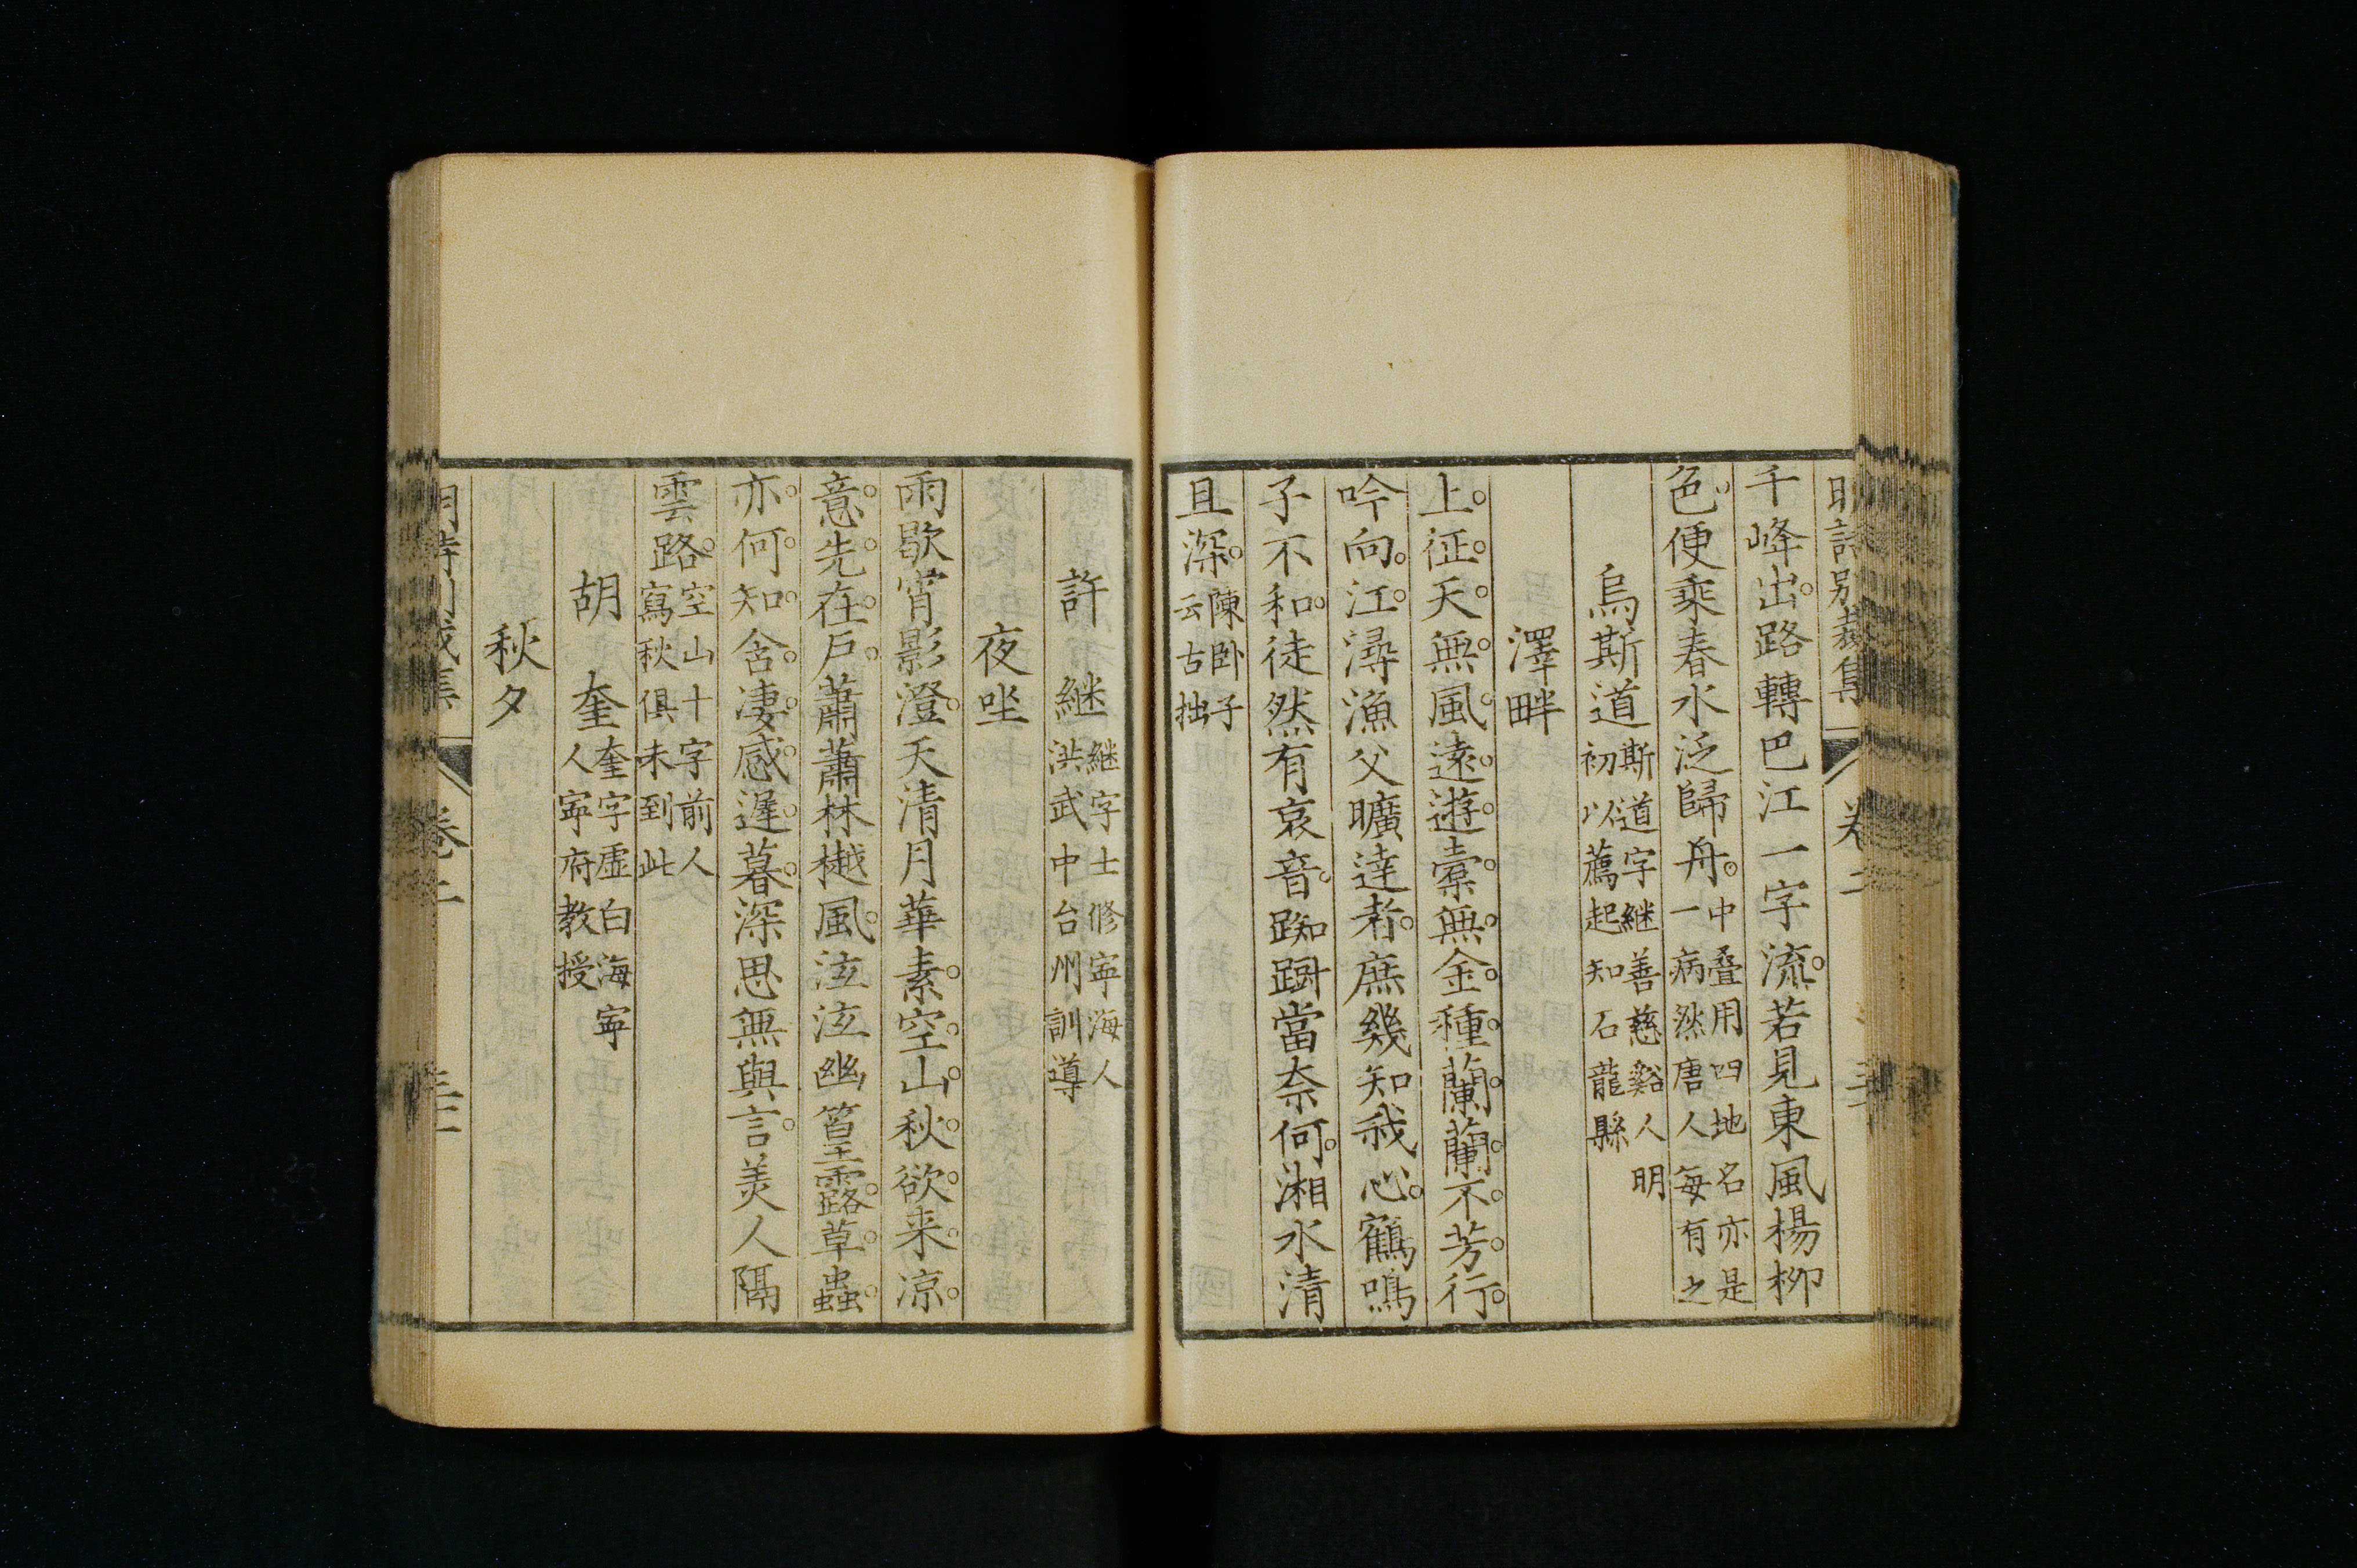 明詩別裁集 卷二
千峰出路轉巴江一字流若見東風楊柳
色便乘春水泛歸舟中叠用四地名亦是一病然唐人每有之
烏斯道斯道字継善慈谿人明初以薦起知石龍縣
澤畔
上征天無風遠遊槖無金種蘭蘭不芳行
吟向江潯漁父曠達者庶幾知我心鶴鳴
子不和徒然有哀音踟蹰當奈何湘水清
且深陳卧子云古拙
許継継字士修寕海人洪武中台州訓導
夜坐
雨歇宵影澄天清月華素空山秋欲来涼
意先在戶蕭蕭林樾風泫泫幽篁露草蟲
亦何知含凄感遲暮深思無與言美人隔
雲路空山十字前人寫秋俱未到此
胡奎奎字虛白海寕人寕府教授
秋夕
明詩別裁集 卷二